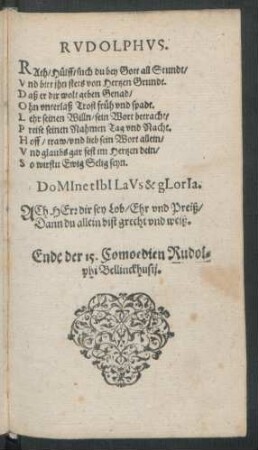 RVDOLPHVS.
RAth/ Hülff/ such du bey Gott all Stundt/
Vnd bitt jhn stets von Hertzen Grundt.
Daß er dir wolt geben Genad/
Ohn vnterlaß Trost früh vnd spadt.
Lehr seinen Willn/ sein Wort betracht/
Preise seinen Nahmen Tag vnd Nacht.
Hoff/ traw/ vnd lieb sein Wort allein/
Vnd glaubs gar fest im Hertzen dein/
So wirstu Ewig Selig seyn.
DoMIne tIbI LaVs & gLorIa.
ACh HErr dir sey Lob/ Ehr vnd Preiß/
Dann du allein bist grecht vnd weiß.
Ende der 15. Comoedien Rudol-
phi Bellinckhusij.